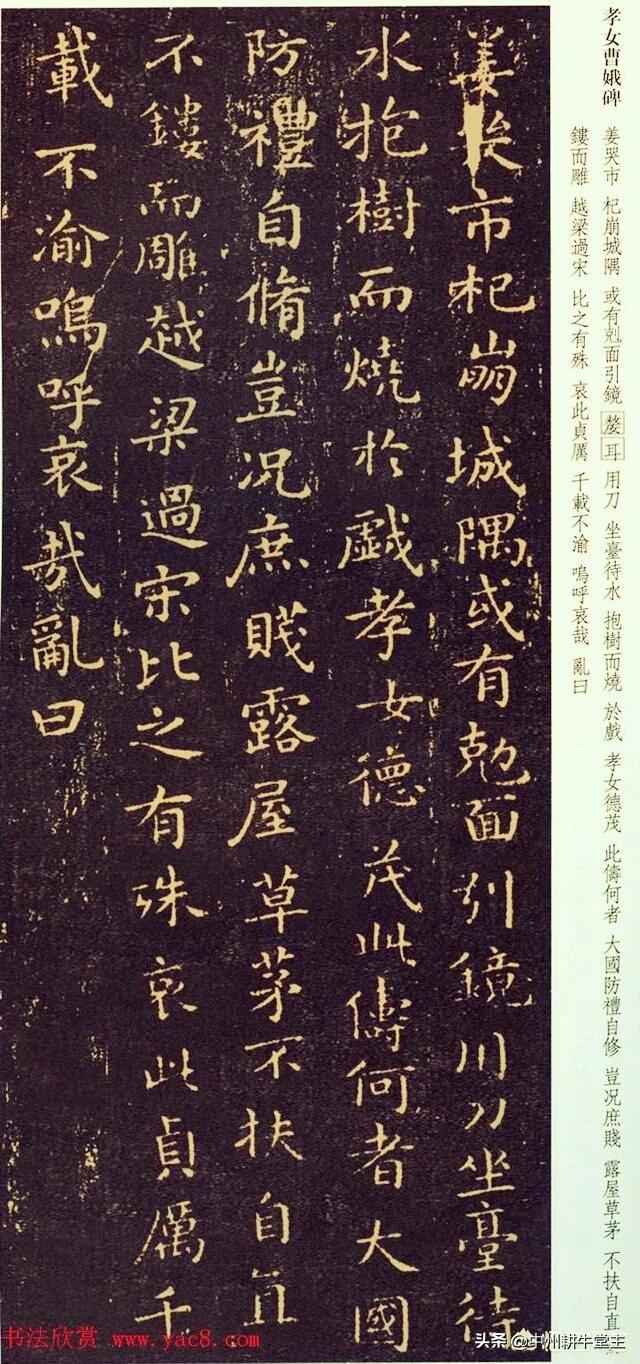 孝女曹娥碑
姜哭市 杞崩城隅 或有剋面引鏡 耳 用刀 坐臺待水 抱樹而燒 於戲 孝女德茂 此儔何者 大國防禮自修 豈况庶賤 露屋草茅 不扶自直
鏤而雕 越梁過宋 比之有殊 哀此貞厲 千載不渝 嗚呼哀哉 亂曰
姜哭市杞崩城隅或有剋面引鏡用刀坐臺待
水抱樹而燒於戲孝女德茂此儔何者大國
防禮自脩豈况庶賤露屋草茅不扶自直
不鏤而雕越梁過宋比之有殊哀此貞厲千
載不渝嗚呼哀哉亂曰
书法欣赏 www.yac8.com
头条 @中州耕牛堂主